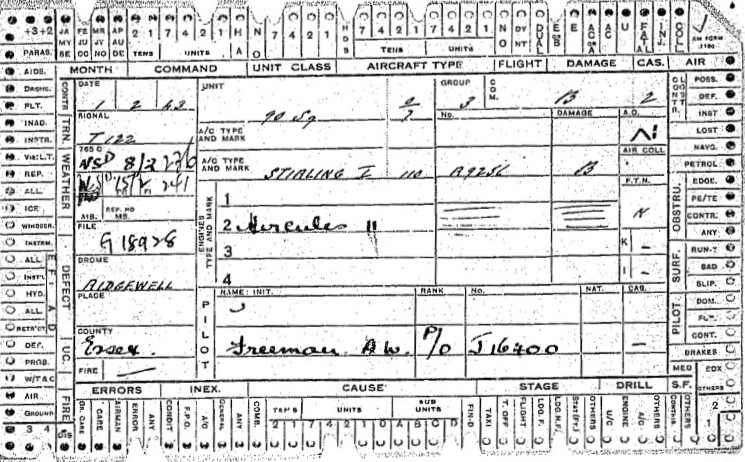 +3 +2 JA FE MR AP 2 1 7 4 2 1 H NO 7 4 2 1 HDS 7 4 2 1 7 4 2 1 NO DY DUAL E E AC U FATAL INJ. COLL
MY JU JY AU A NT OR OR A FORM
PARAS. SE OC NO DE TENS UNITS TENS UNITS B A 1180
AIDS. MONTH COMMAND UNIT CLASS AIRCRAFT TYPE FLIGHT DAMAGE CAS. AIR
DROME. CONTR DATE UNIT GROUP COM. CLOUD POSS.
FLT. 1 2 43 90 Sq 3 B 2 DEF.
INAD. TRN. SIGNAL A/C TYPE AND MARK No. DAMAGE A.O. INST
INSTR. T 122 N LOST
VIS: L.T. WEATHER 765 C AIR COLL NAVG.
REP. NSD 8/2 A/C TYPE AND MARK STIRLING I 110 R9256 B PETROL
ALL 15/2 241 F.T.N. OBSTRU. EDGE.
ICE A.I.B. REF. NO MS. ENGINES TYPE AND MARK 1 N PE/TE
WINDSCR. FILE 2 Hercules II CONTR.
INSTRM. G 18928 3 K – ANY
ALL DEFECT DROME 4 I – SURF. RUN-Y
INST. RIDGEWELL BAD
HYD. PLACE PILOT NAME: INIT. RANK No. NAT. CAS. SLIP.
ALL PILOT DOM.
RETRCT. COUNTY FL.
DEF. LOC. Essex. Freeman A W. P/O J 16400 – CONT.
PROB. FIRE – BRAKES
W/T & C MED EQX
AIR ERRORS INEX. CAUSE STAGE DRILL S.F. OTHERS
GROUND FIRE OR. CARE CARE AIRMAN ERROR ANY CONDIT F.P.O. A/C GENERAL ANY COMB. TENS UNITS SUB UNITS FIN-D TAXI T. OFF FLIGHT LDG. F. LDG. N.F. STAT(FT.) OTHERS U/C ENGINE A/C OTHERS CONTRIB. OTHERS 2
3 4 DIS 2 1 7 4 2 1 A B C D 1